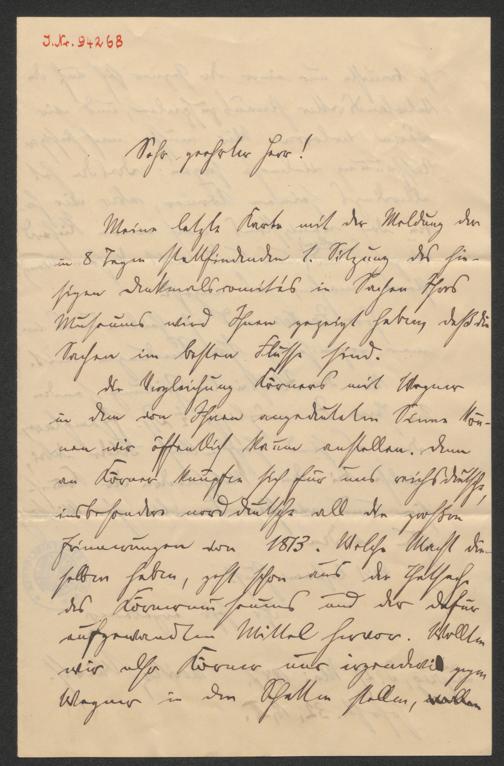 J.Nr. 94268
Sehr geehrter Herr!
Meine letzte Karte mit der Meldung der
in 8 Tagen stattfindenden 1. Sitzung des hie-
sigen Denkmalscomités in Sachen Ihres
Museums wird Ihnen gezeigt haben, daß die
Sachen im besten Flusse sind.
Die Vergleichung Körners mit Wagner
in dem von Ihnen angedeuteten Sinne kön-
nen wir öffentlich kaum anstellen. Denn
an Körner knüpfen sich für uns reichsdeutsche,
insbesondere norddeutsche all die großen
Erinnerungen von 1813. Welche Macht die-
selben haben, geht schon aus der Thatsache
des Körnermuseums und der dafür
aufgewandten Mittel hervor. Wollten
wir also Körner nur irgendwie gegen
Wagner in den Schatten stellen,